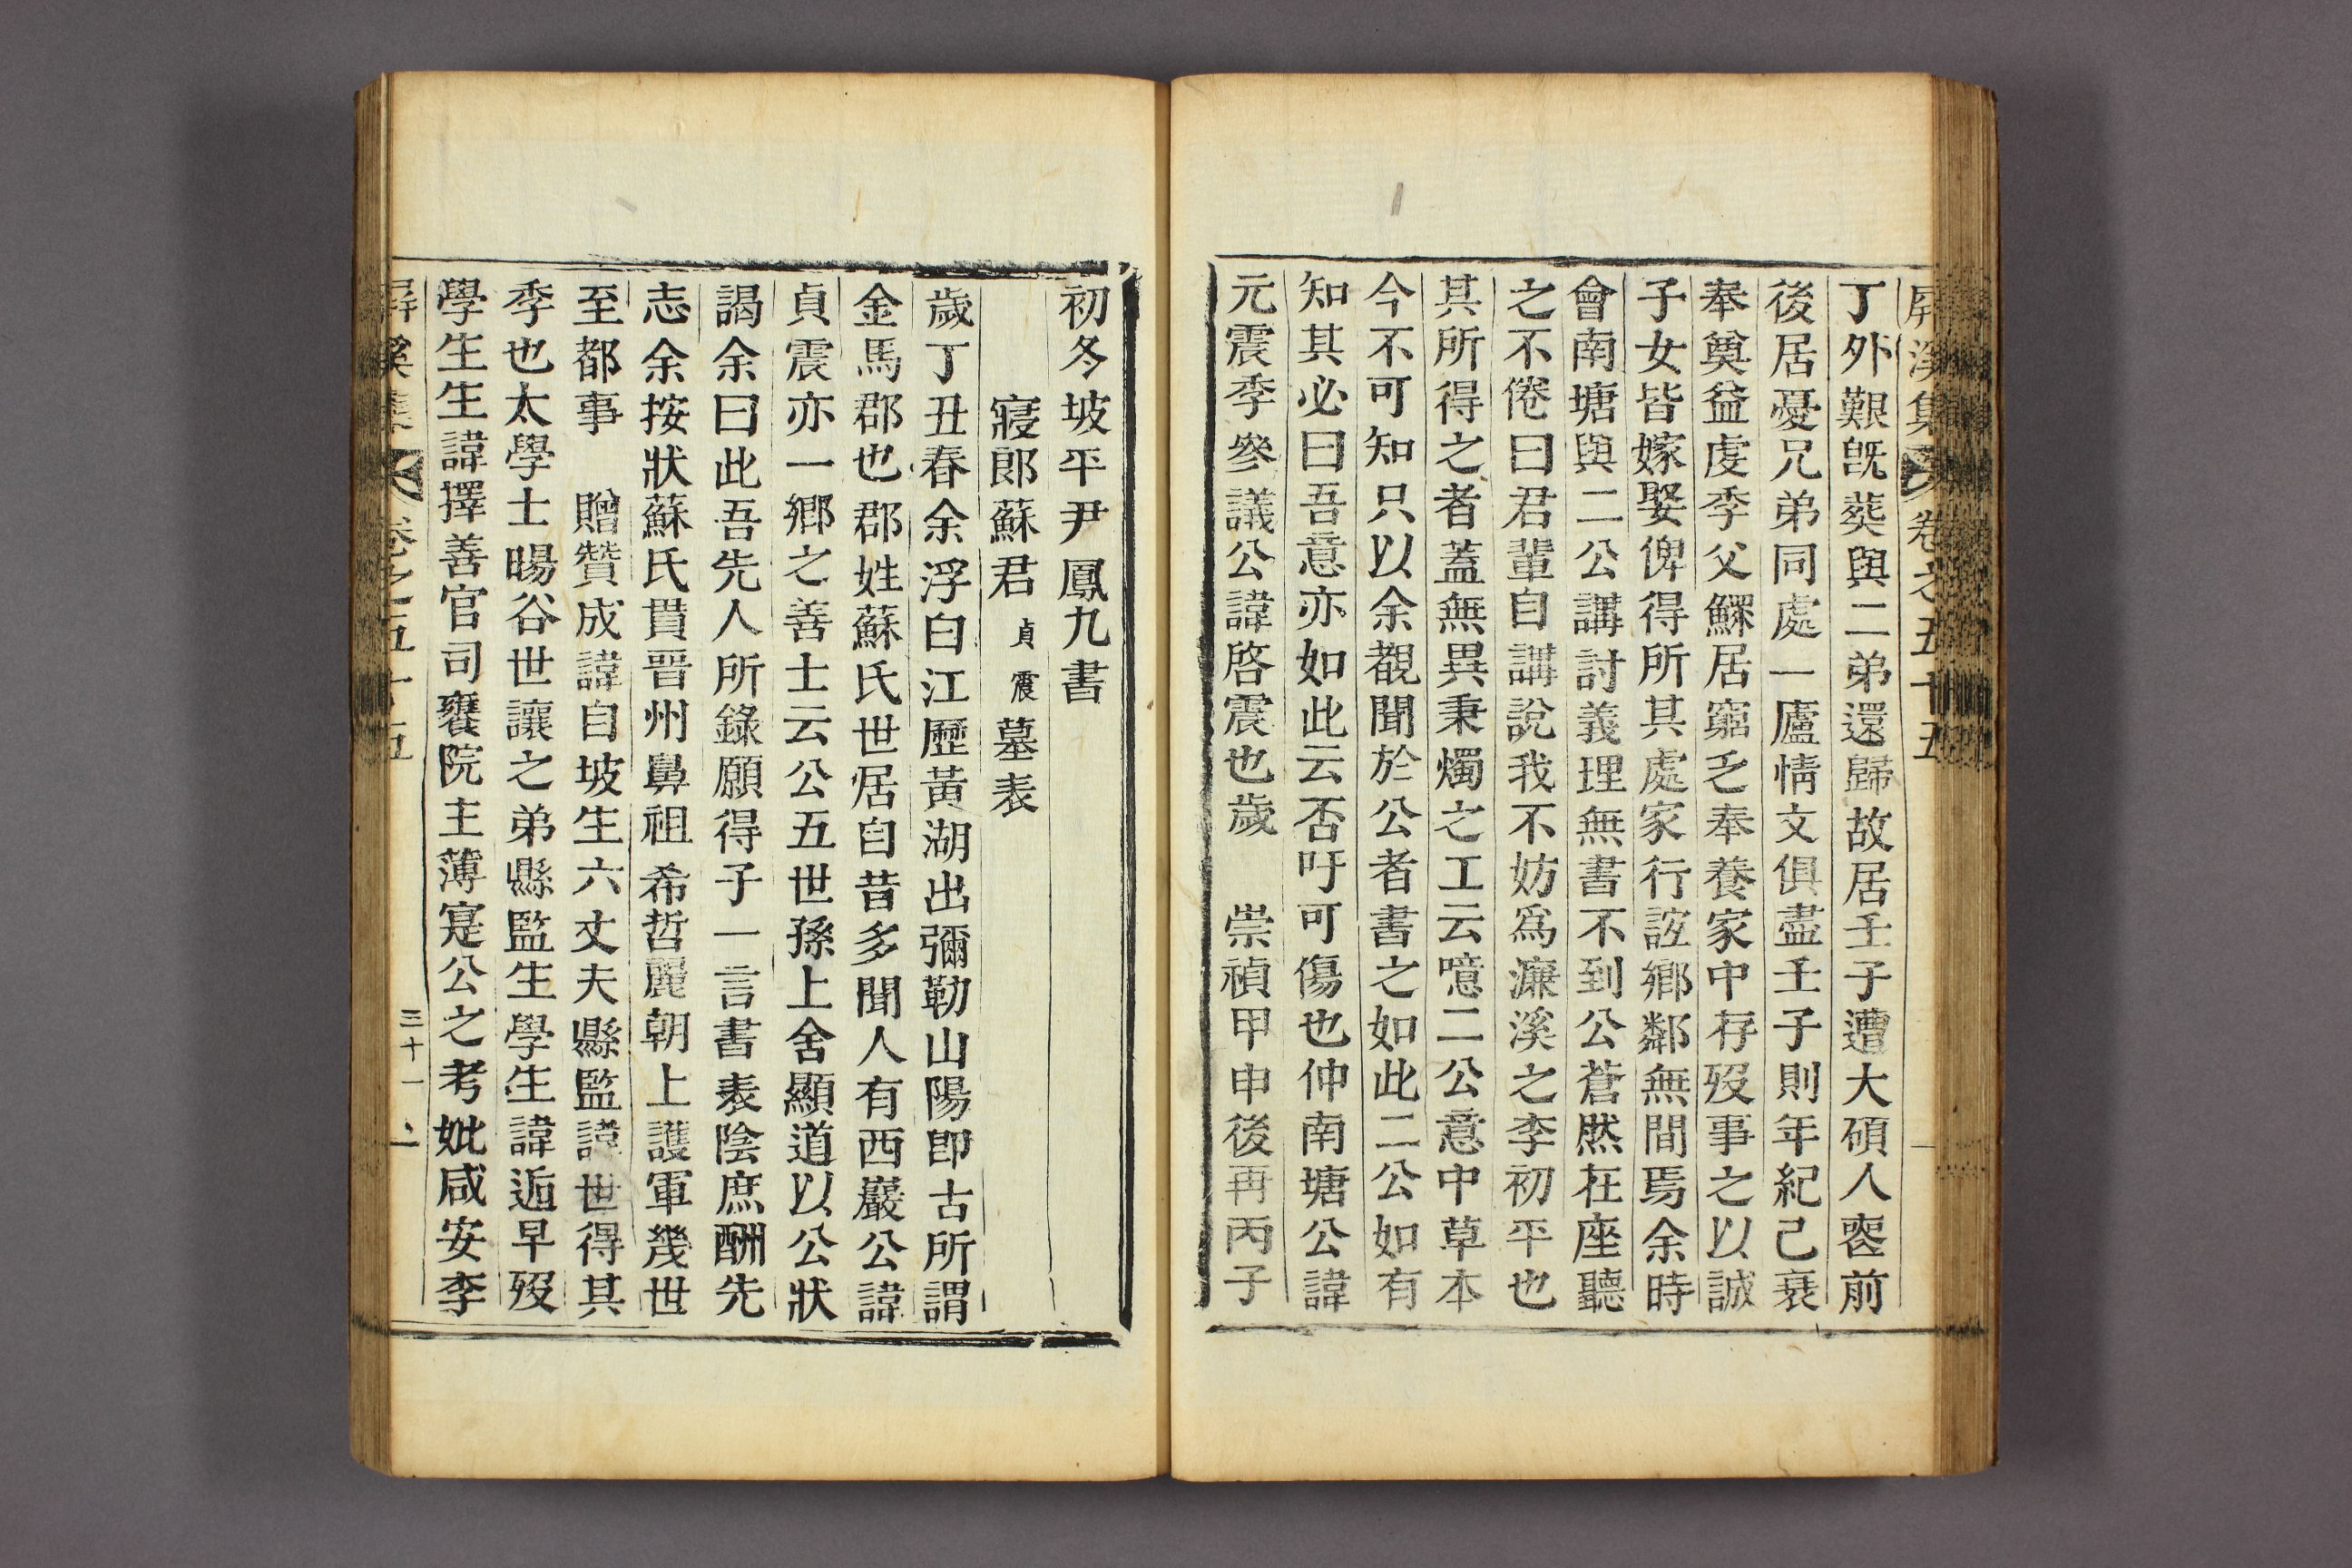 屛溪集 卷之五十五
丁外艱旣葬與二弟還歸故居壬子遭大碩人喪前
後居憂兄弟同處一廬情文俱盡壬子則年紀已衰
奉奠益虔季父鰥居窮乏奉養家中存歿事之以誠
子女皆嫁娶俾得所其處家行誼鄕鄰無間焉余時
會南塘與二公講討義理無書不到公蒼然在座聽
之不倦曰君輩自講說我不妨爲濂溪之李初平也
其所得之者蓋無異秉燭之工云噫二公意中草本
今不可知只以余覩聞於公者書之如此二公如有
知其必曰吾意亦如此云否吁可傷也仲南塘公諱
元震季參議公諱啓震也歲 崇禎甲申後再丙子
初冬坡平尹鳳九書
寢郞蘇君貞震墓表
歲丁丑春余浮白江歷黃湖出彌勒山陽卽古所謂
金馬郡也郡姓蘇氏世居自昔多聞人有西巖公諱
貞震亦一鄕之善士云公五世孫上舍顯道以公狀
謁余曰此吾先人所錄願得子一言書表陰庶酬先
志余按狀蘇氏貫晉州鼻祖希哲麗朝上護軍幾世
至都事 贈贊成諱自坡生六丈夫縣監諱世得其
季也太學士暘谷世讓之弟縣監生學生諱逅早歿
學生生諱擇善官司饔院主薄寔公之考妣咸安李
屛溪集 卷之五十五 三十一